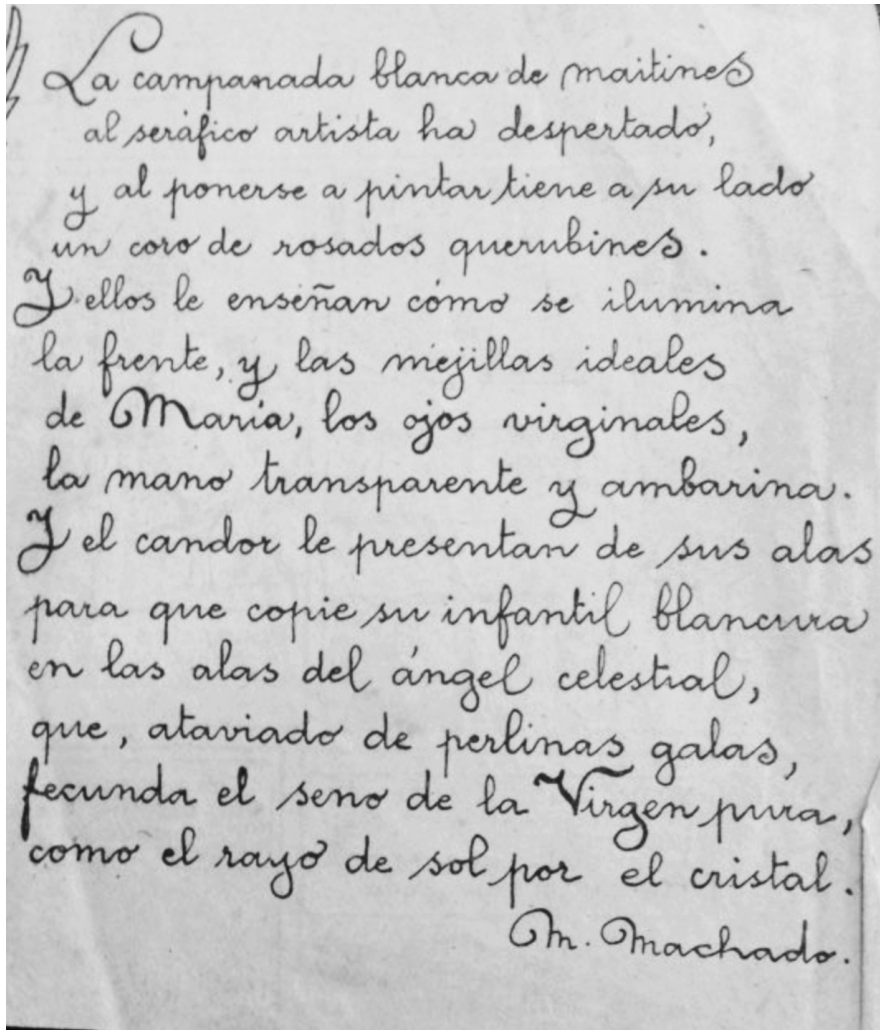 La campanada blanca de maitines
al seráfico artista ha despertado,
y al ponerse a pintar tiene a su lado
un coro de rosados querubines.
Y ellos le enseñan cómo se ilumina
la frente, y las mejillas ideales
de María, los ojos virginales,
la mano transparente y ambarina.
Y el candor le presentan de sus alas
para que copie su infantil blancura
en las alas del ángel celestial,
que, ataviado de perlinas galas,
fecunda el seno de la Virgen pura,
como el rayo de sol por el cristal.
M. Machado.